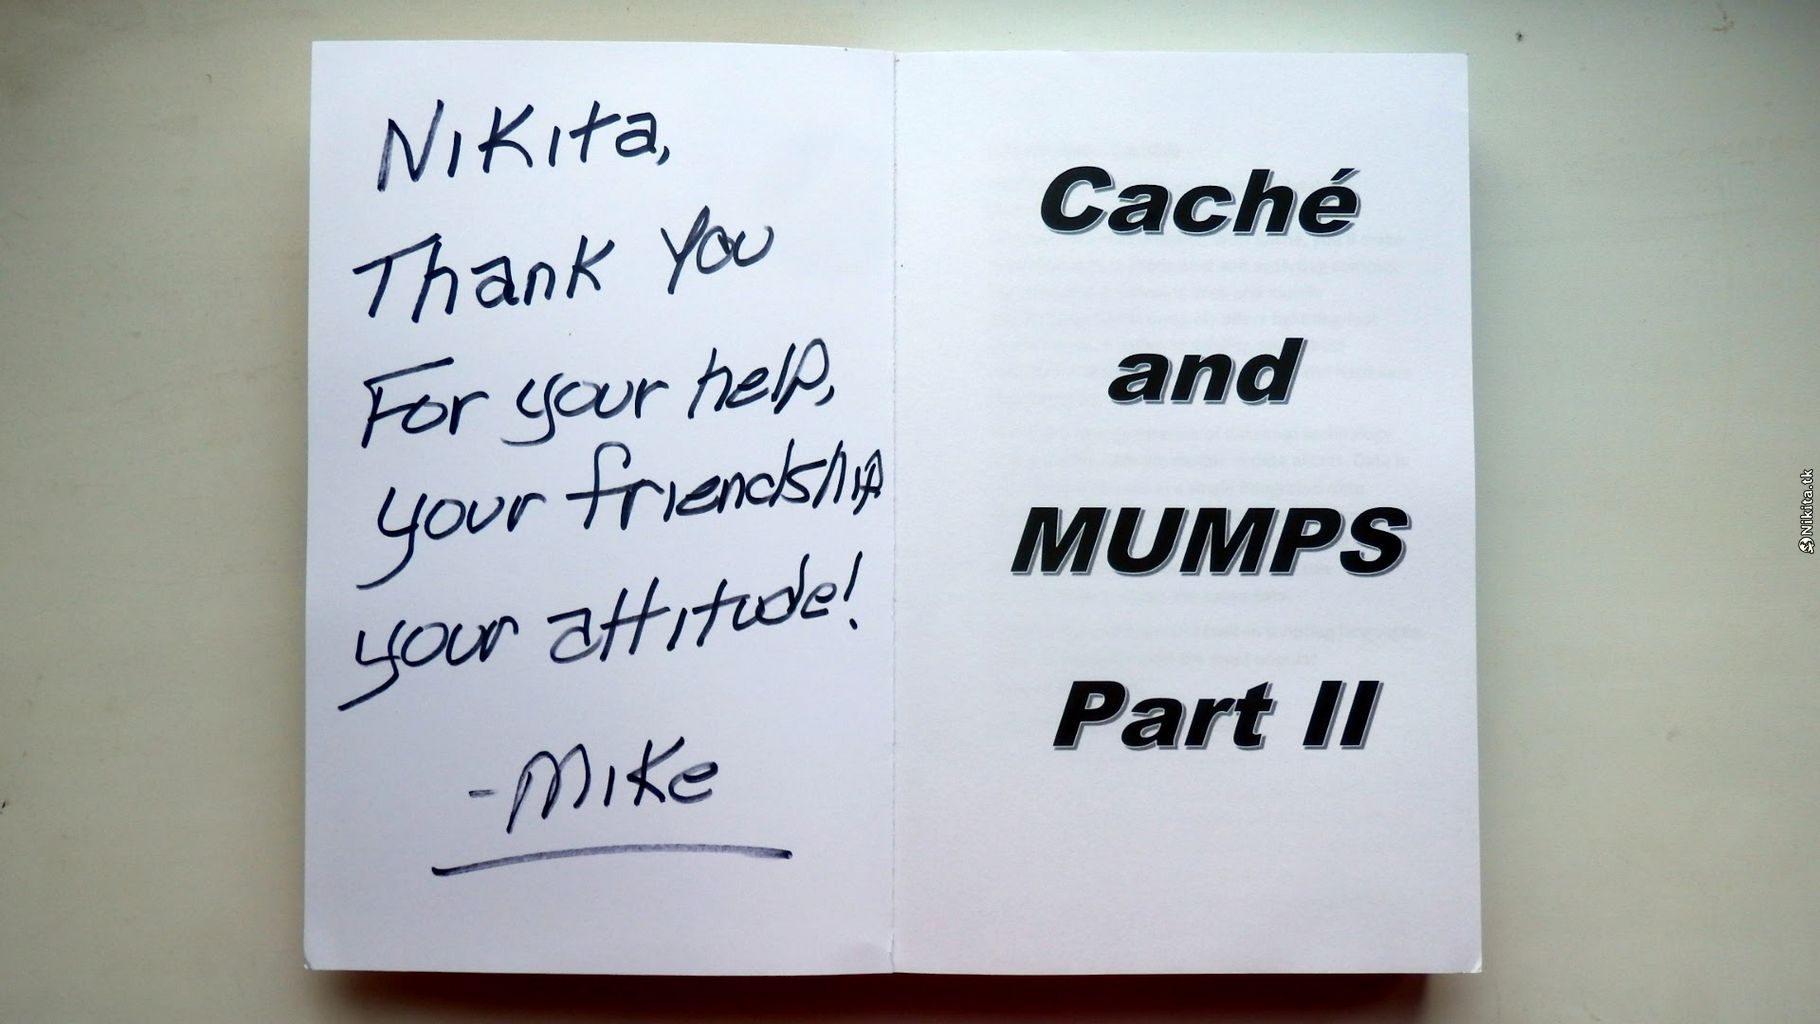 Nikita,
Thank you
For your help,
your friendship
your attitude!
-Mike
Caché
and
MUMPS
Part II
Nikita.tk